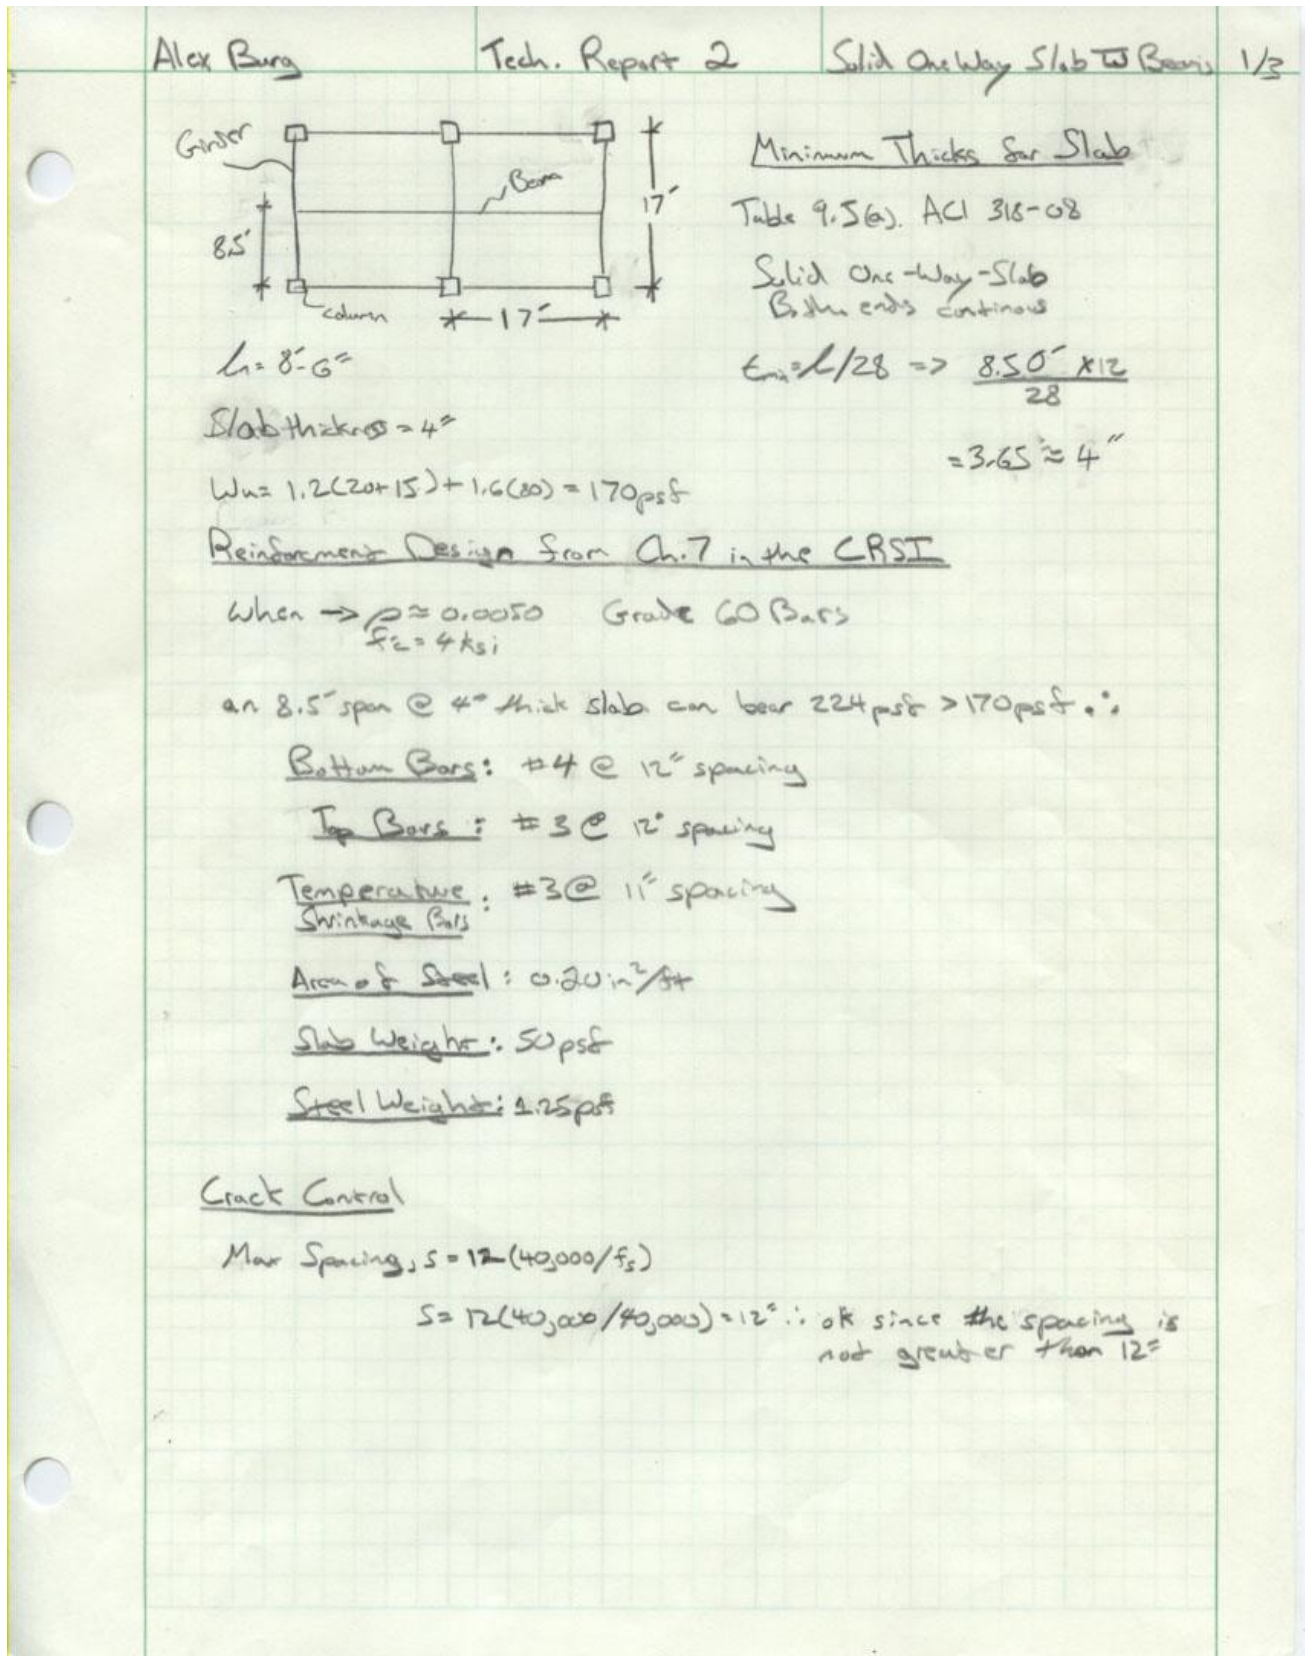 Alex Burg Tech. Report 2 Solid One Way Slab w Beams 1/3
Girder
Beam
17'
8.5'
column
17'
Minimum Thicks for Slab
Table 9.5(a). ACI 318-08
Solid One-Way-Slab
Both ends continous
ln = 8'-6"
tmin = l/28 => 8.50' x12
28
Slab thickness = 4"
= 3.65 ≈ 4"
Wu = 1.2(20+15) + 1.6(80) = 170psf
Reinforcment Design from Ch.7 in the CRSI
When → ρ ≈ 0.0050 Grade 60 Bars
f'c = 4 ksi
an 8.5' span @ 4" thick slab can bear 224psf > 170psf ∴
Bottom Bars: #4 @ 12" spacing
Top Bars: #3 @ 12" spacing
Temperature : #3 @ 11" spacing
Shrinkage Bars
Area of Steel: 0.20 in²/ft
Slab Weight: 50 psf
Steel Weight: 1.25psf
Crack Control
Max Spacing, s = 12(40,000/fs)
s = 12(40,000/40,000) = 12" ∴ ok since the spacing is
not greater than 12"